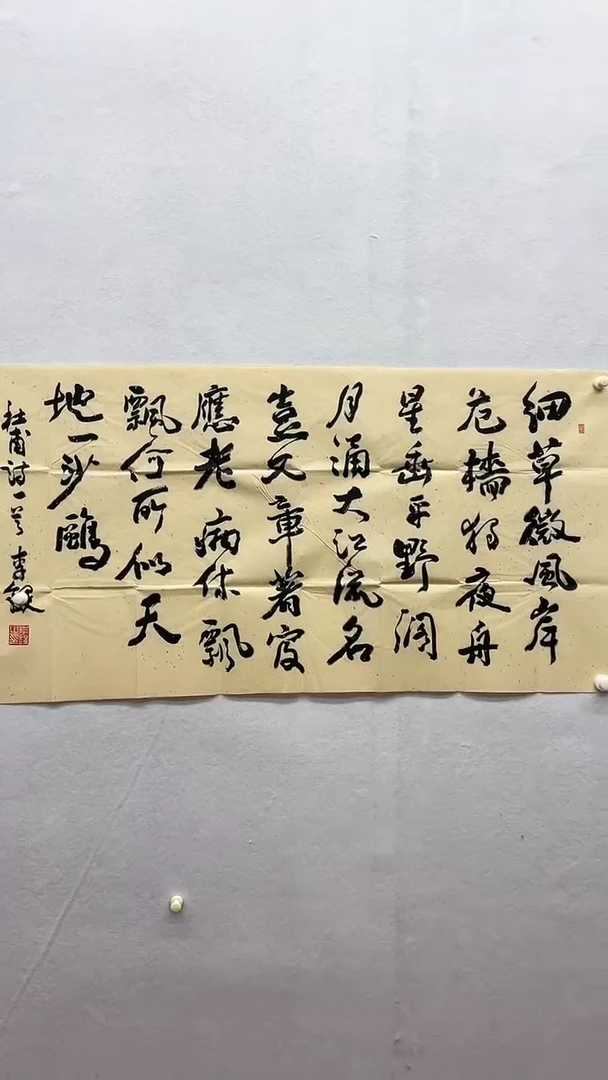 細草微風岸
危檣独夜舟
星垂平野阔
月涌大江流名
豈文章著官
應老病休飄
飄何所似天
地一沙鷗
杜甫诗一首 李